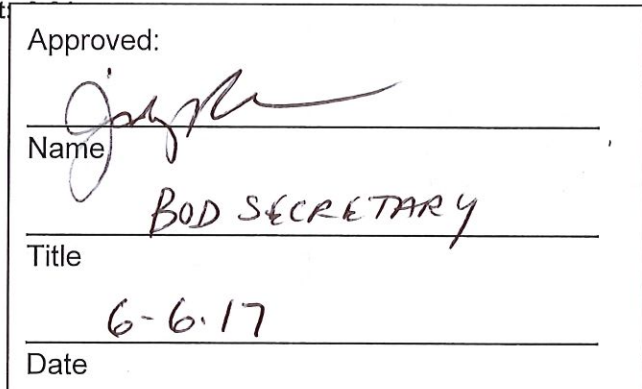 Approved:
Name
BOD SECRETARY
Title
6-6.17
Date